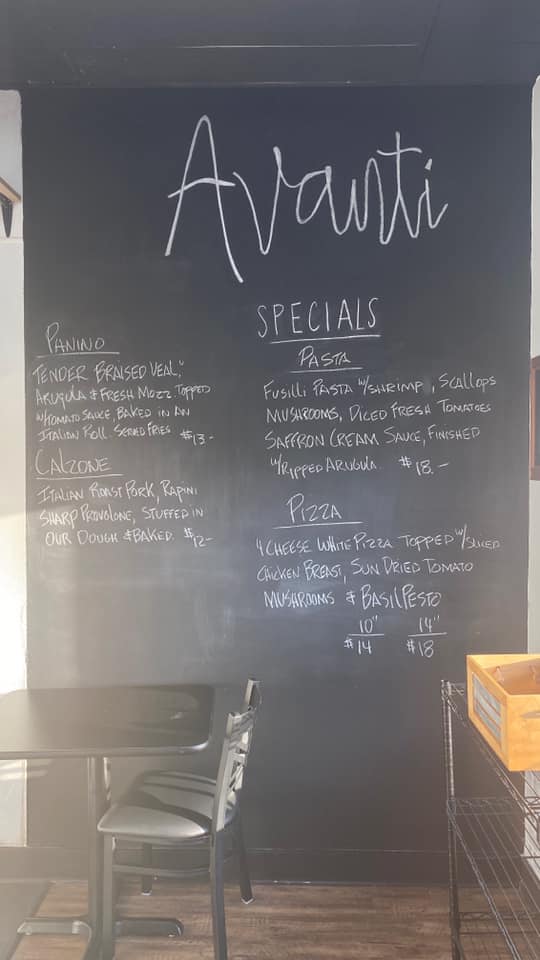 Avanti
PANINO
TENDER BRAISED VEAL,
ARUGULA & FRESH MOZZ TOPPED
W/TOMATO SAUCE, BAKED IN AN
ITALIAN ROLL. SERVED FRIES $13-
CALZONE
ITALIAN ROAST PORK, RAPINI
SHARP PROVOLONE, STUFFED IN
OUR DOUGH & BAKED. $12-
SPECIALS
PASTA
FUSILLI PASTA W/SHRIMP, SCALLOPS
MUSHROOMS, DICED FRESH TOMATOES
SAFFRON CREAM SAUCE, FINISHED
W/RIPPED ARUGULA. $18.-
PIZZA
4 CHEESE WHITE PIZZA TOPPED W/SLICED
CHICKEN BREAST, SUN DRIED TOMATO
MUSHROOMS & BASIL PESTO
10" 14"
$14 $18